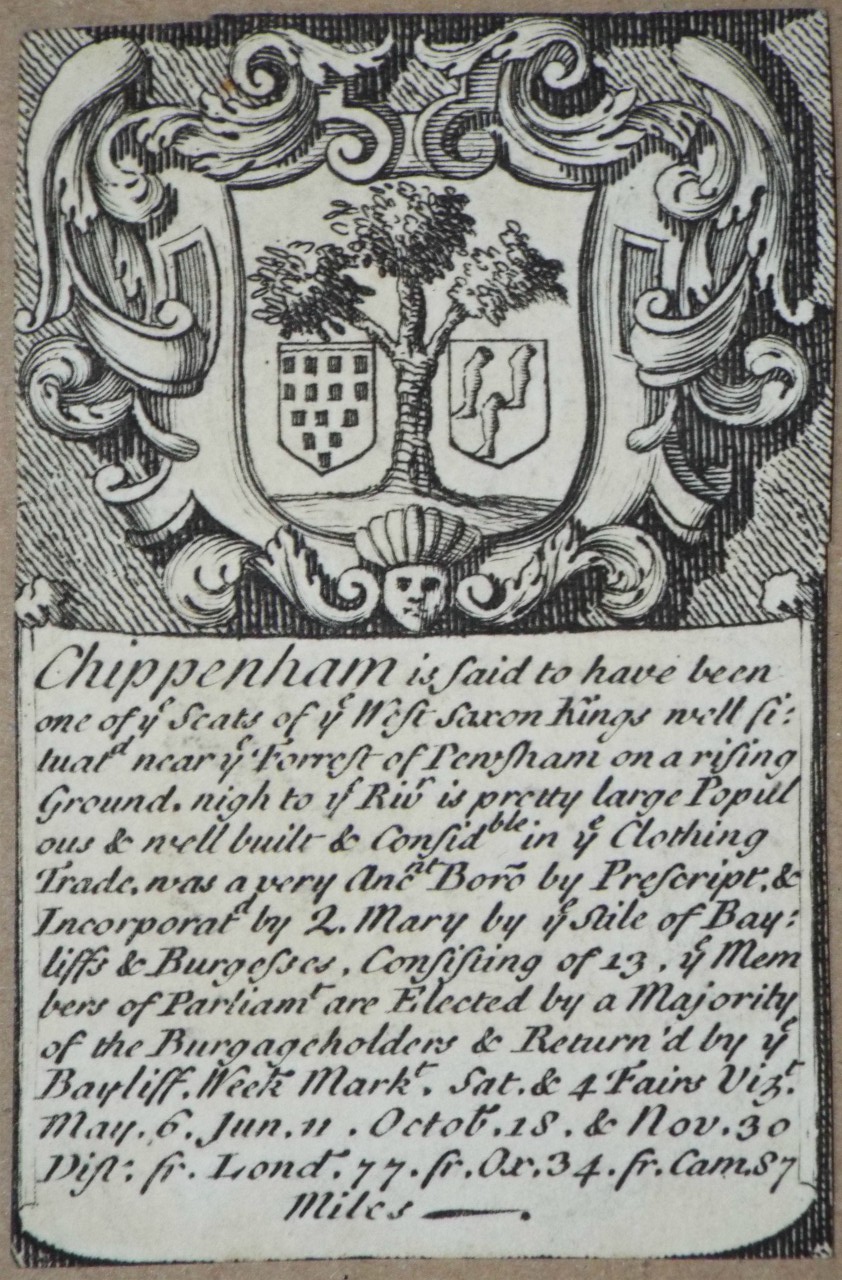 Chippenham is ſaid to have been
one of yᵉ Seats of yᵉ Weſt Saxon Kings well ſi:
tuatᵈ near yᵉ Forreſt of Pewſham on a riſing
Ground. nigh to yᵉ Rivʳ is pretty large Popul
ous & well built & Conſidᵇˡᵉ in yᵉ Clothing
Trade. was a very Ancⁿᵗ Borõ by Preſcript. &
Incorporatᵈ by Q. Mary by yᵉ Stile of Bay:
liffs & Burgeſses, Conſiſting of 13. yᵉ Mem
bers of Parliamᵗ are Elected by a Majority
of the Burgageholders & Return'd by yᵉ
Bayliff. Week Markᵗ. Sat. & 4 Fairs Vizᵗ.
May. 6. Jun. 11. Octobʳ. 18. & Nov. 30
Diſt: fr. Londⁿ. 77. fr. Ox. 34. fr. Cam. 87
Miles —.